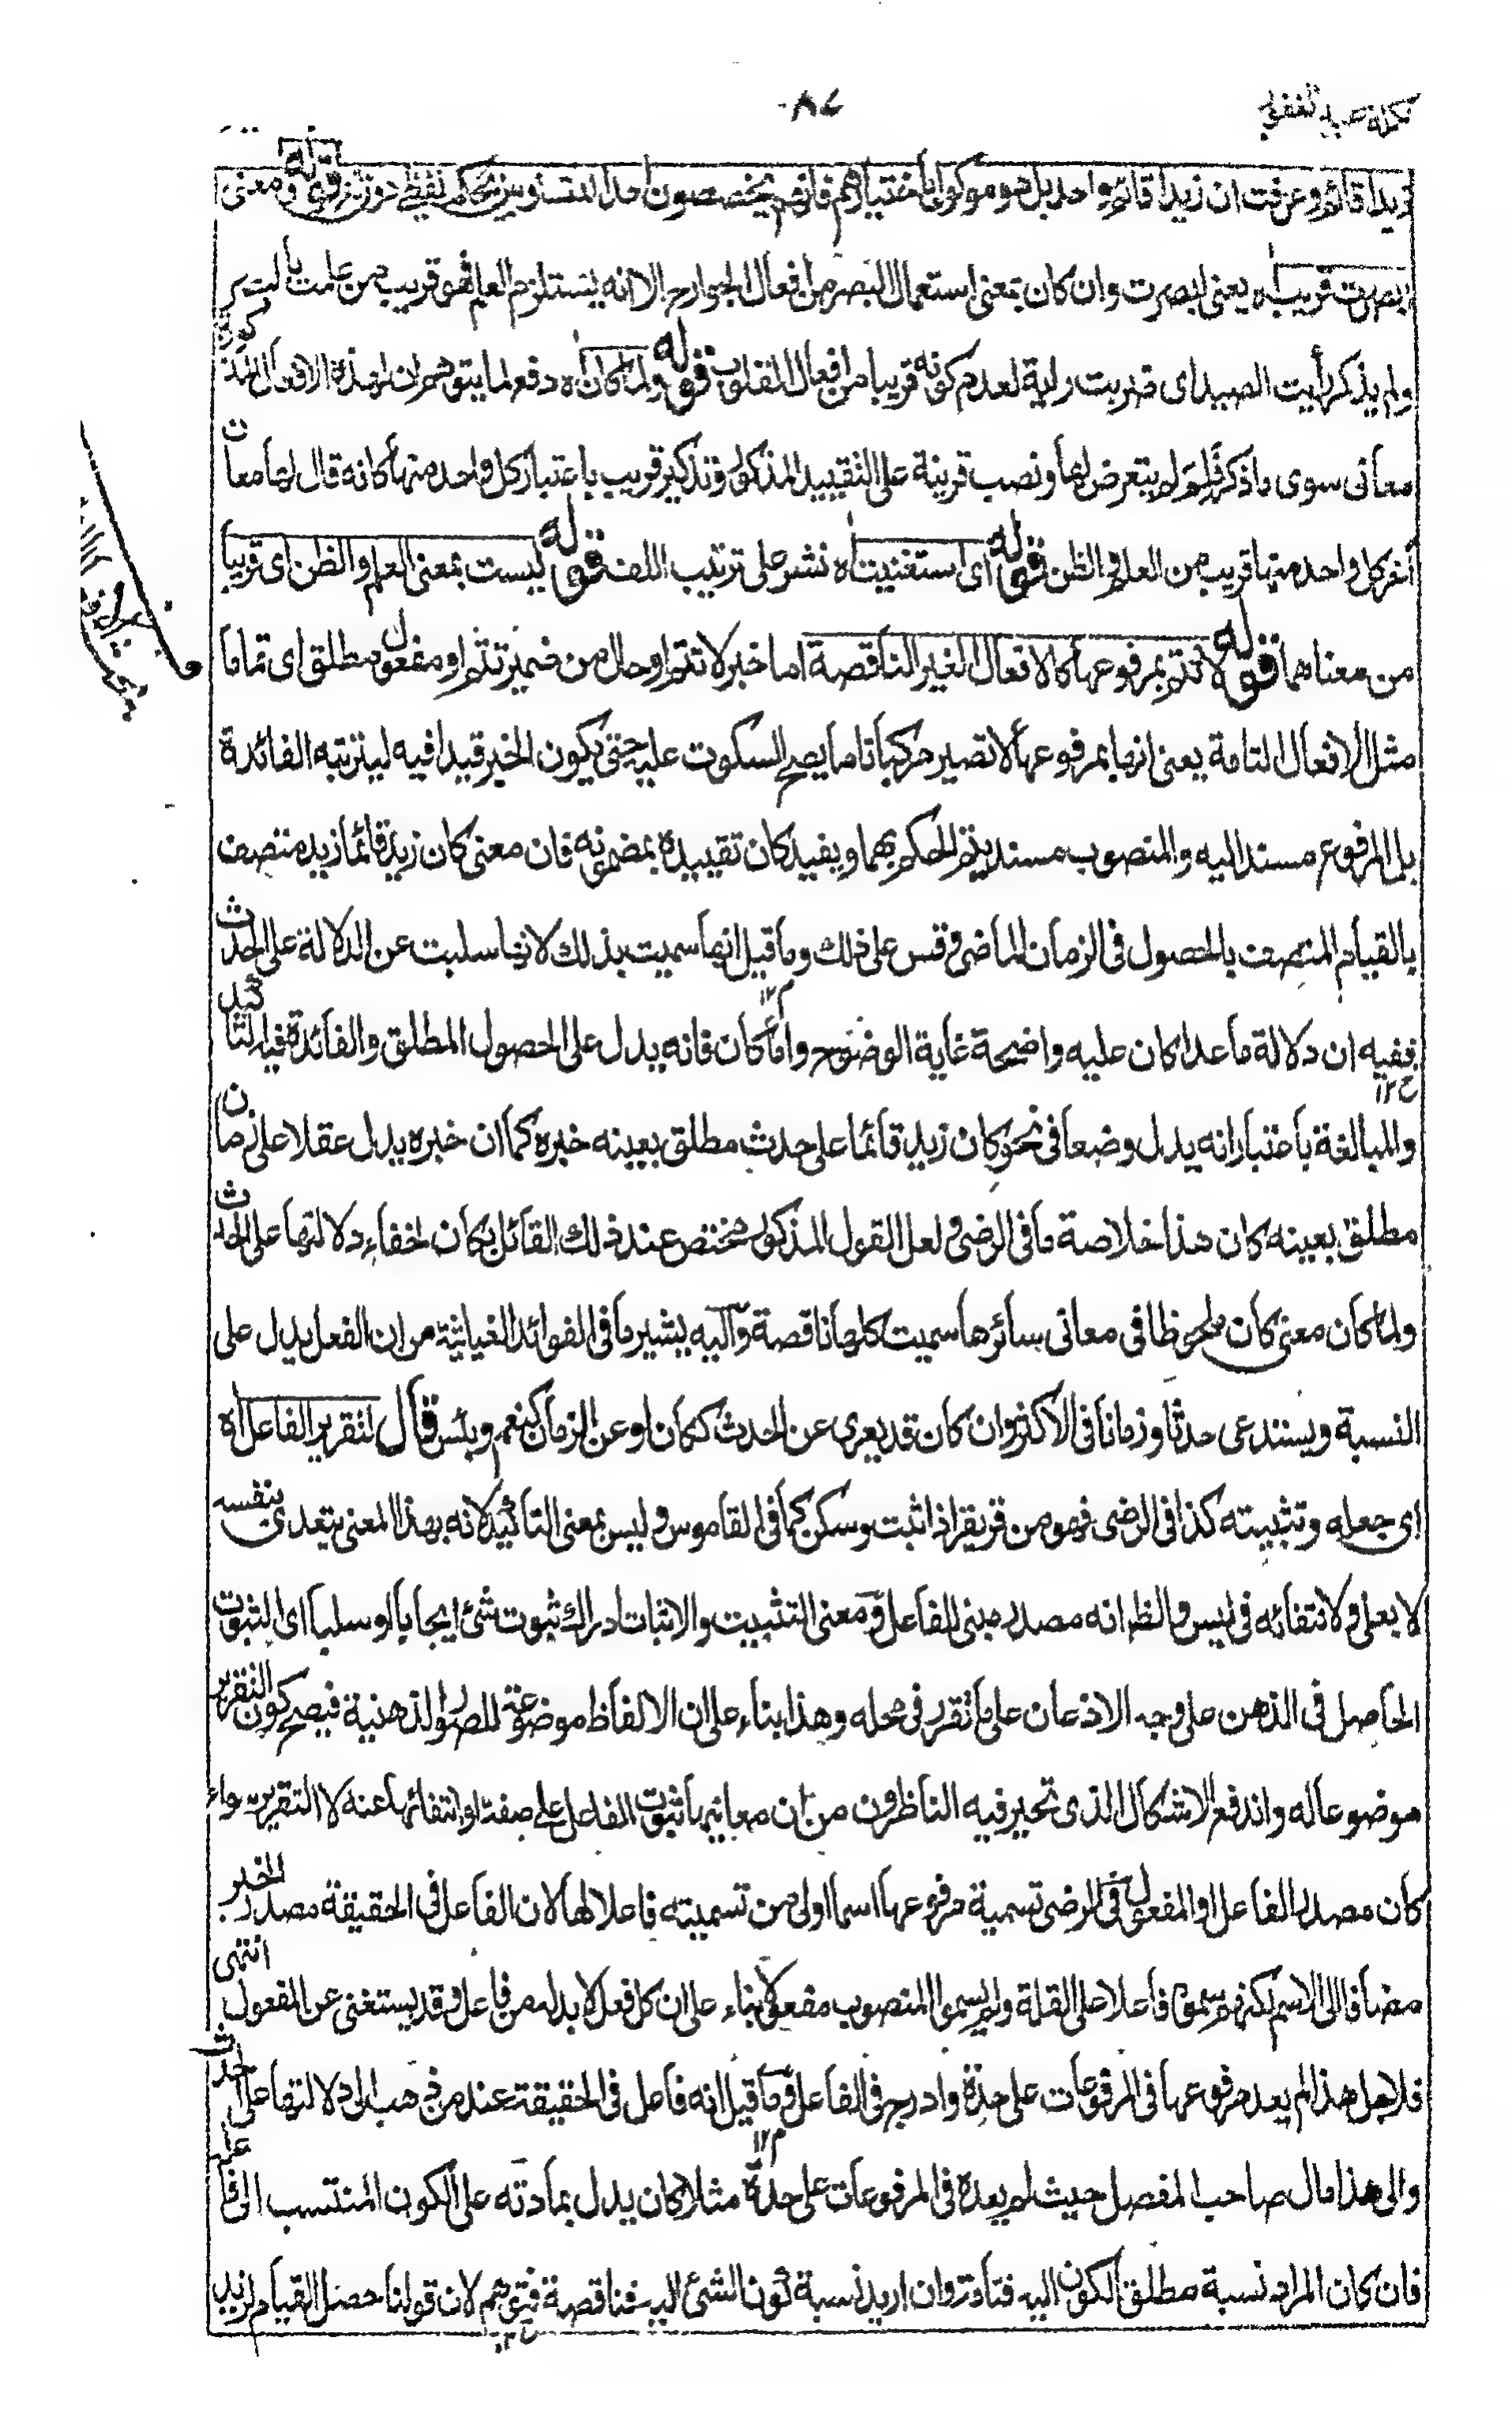 تكملة عبد الغفور
٨٤
زيدا قائم وعرفت ان زيدا قائم واحد بل هو موكول باختيارهم فانهم يخصصون احد المتساويين بحكم لفظي دون قوله ومعنى
ابصرت قريب اه يعني ابصرت وان كان بمعنى استعمال البصر من افعال الجوارح الا انه يستلزم العلم فهو قريب من علمت بالتـ
ولم يذكر رأيت الصيد اى ضربت رايه لعدم كونه قريبا من افعال القلوب قوله ولما كان اه دفع لما يتوهم ان لهذه الافعال
معانى سوى ما ذكر فلم لم يتعرض لها ونصب قرينة على التقييد المذكور وتذكير قريب باعتبار كل واحد منها كانه قال لها معان
أخر كل واحد منها قريب من العلم والظن قوله اى استغنيت اه نشر على ترتيب اللف قوله ليست بمعنى العلم والظن اى قريبا
من معناهما قوله لا تتم بمرفوعها كالافعال الغير الناقصة اما خبر لا تتم او حال من ضمير تتم او مفعول مطلق اى تماما
مثل الافعال التامة يعني انها بمرفوعها لا تصير مركبا تاما يصح السكوت عليه حتى يكون الخبر قيدا فيه ليتربته الفائدة
بل المرفوع مسند اليه والمنصوب مسند يتم الحكم بهما ويفيد كان تقييده بمضمونه فان معنى كان زيد قائما زيد متصف
بالقيام المتصف بالحصول فى الزمان الماضى وقس على ذلك وما قيل انها سميت بذلك لانها سلبت عن الدلالة على الحدث
ففيه ان دلالة ما عدا كان عليه واضحة غاية الوضوح واما كان فانه يدل على الحصول المطلق والفائدة فيه التاكيد
والمبالغة باعتبار انه يدل وضعا فى نحو كان زيد قائما على حدث مطلق بعينه خبره كما ان خبره يدل عقلا على زمان
مطلق بعينه كان هذا خلاصة ما فى الرضى ولعل القول المذكور مختص عند ذلك القائل بكان لخفاء دلالتها على الحدث
ولما كان معنى كان ملحوظا فى معانى سائرها سميت كلها ناقصة واليه يشير ما فى الفوائد الغياثية من ان الفعل يدل على
النسبة ويستدعى حدثا وزمانا فى الاكثر وان كان قد يعرى عن الحدث ككان او عن الزمان كنعم وبئس قال لتقرير الفاعل اه
اى جعله وتثبيته كذا فى الرضى فهو من قر يقر اذا ثبت وسكن كما فى القاموس وليس بمعنى التأكيد لانه بهذا المعنى يتعدى بنفسه
لا بعلى ولانتفائه فى ليس والظ انه مصدر مبنى للفاعل ومعنى التثبيت والاثبات ادراك ثبوت شئ ايجابا او سلبا اى الثبوت
الحاصل فى الذهن على وجه الاذعان على ما تقرر فى محله وهذا بناء على ان الالفاظ موضوعة للصور الذهنية فيصح كون التقرير
موضوعا له واندفع الاشكال الذى تحير فيه الناظرون من ان معانيها ثبوت الفاعل على صفة او انتفائها عنه لا التقرير سواء
كان مصدر الفاعل او المفعول وفى الرضى تسمية مرفوعها اسما اولى من تسميته فاعلا لها لان الفاعل فى الحقيقة مصدر الخبر
مضافا الى الاسم لكنهم سموه فاعلا على القلة ولم يسموا المنصوب مفعولا بناء على ان كل فعل لا بد له من فاعل وقد يستغنى عن المفعول انتهى
فلاجل هذا لم يعد مرفوعها فى المرفوعات على حدة وادرج فى الفاعل وما قيل انه فاعل فى الحقيقة عند من ذهب الى دلالتها على الحدث
والى هذا مال صاحب المفصل حيث لم يعده فى المرفوعات على حدة مثلا كان يدل بمادته على الكون المنتسب الى فاعله
فان كان المراد نسبة مطلق الكون اليه فتامة وان اريد نسبة كون الشئ اليه فناقصة فتوهم لان قولنا حصل القيام لزيد